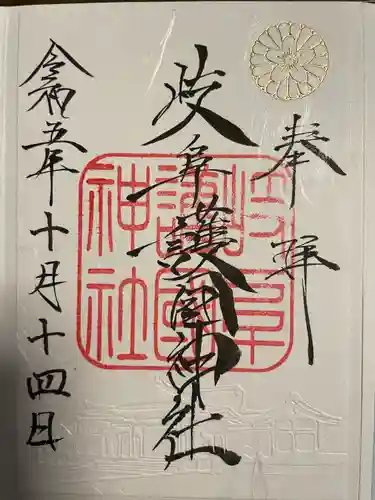 奉拝
岐阜護國神社
岐阜
護國
神社
令和五年十月十四日